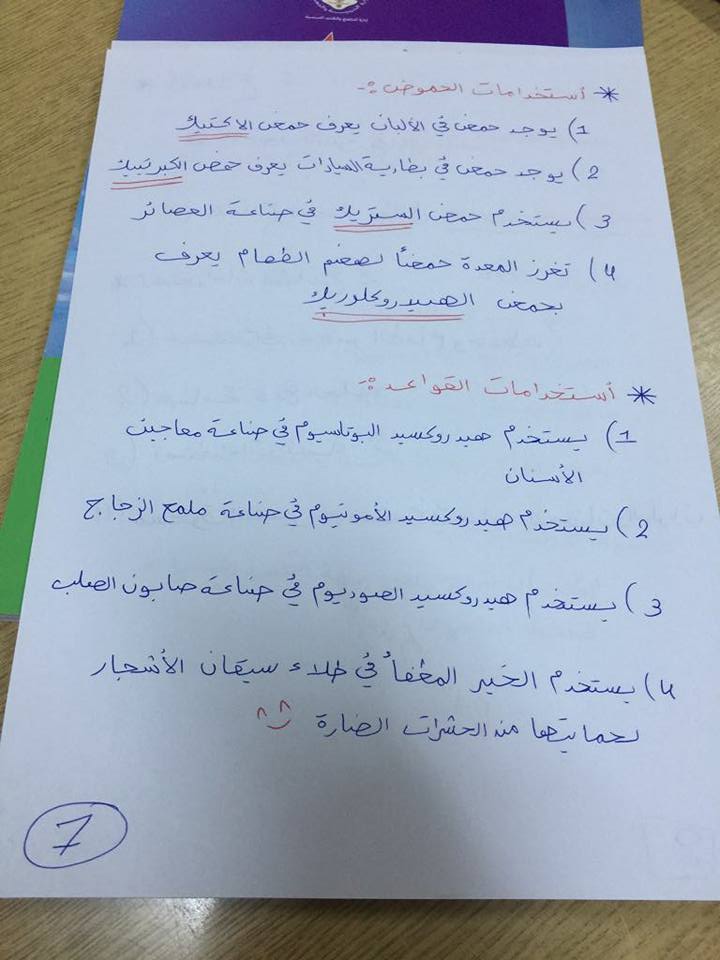 * أستخدامات الحموض :-
1) يوجد حمض في الألبان يعرف حمض الاكتيك
2) يوجد حمض في بطارية السيارات يعرف حمض الكبريتيك
3) يستخدم حمض الستريك في صناعة العصائر
4) تفرز المعدة حمضاً لهضم الطعام يعرف
بحمض الهيدروكلوريك
* أستخدامات القواعد :-
1) يستخدم هيدروكسيد البوتاسيوم في صناعة معاجين
الأسنان
2) يستخدم هيدروكسيد الأمونيوم في صناعة ملمع الزجاج
3) يستخدم هيدروكسيد الصوديوم في صناعة صابون الصلب
4) يستخدم الجير المطفأ في طلاء سيقان الأشجار
لحمايتها من الحشرات الضارة ^^
7